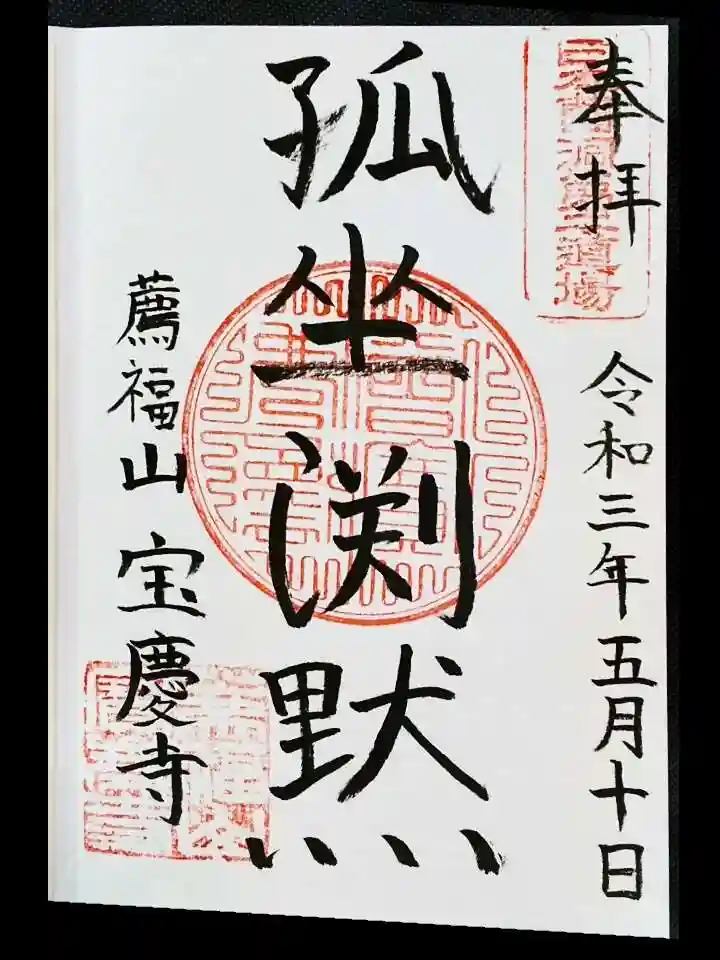 奉拝
令和三年五月十日
孤坐渕黙
薦福山宝慶寺